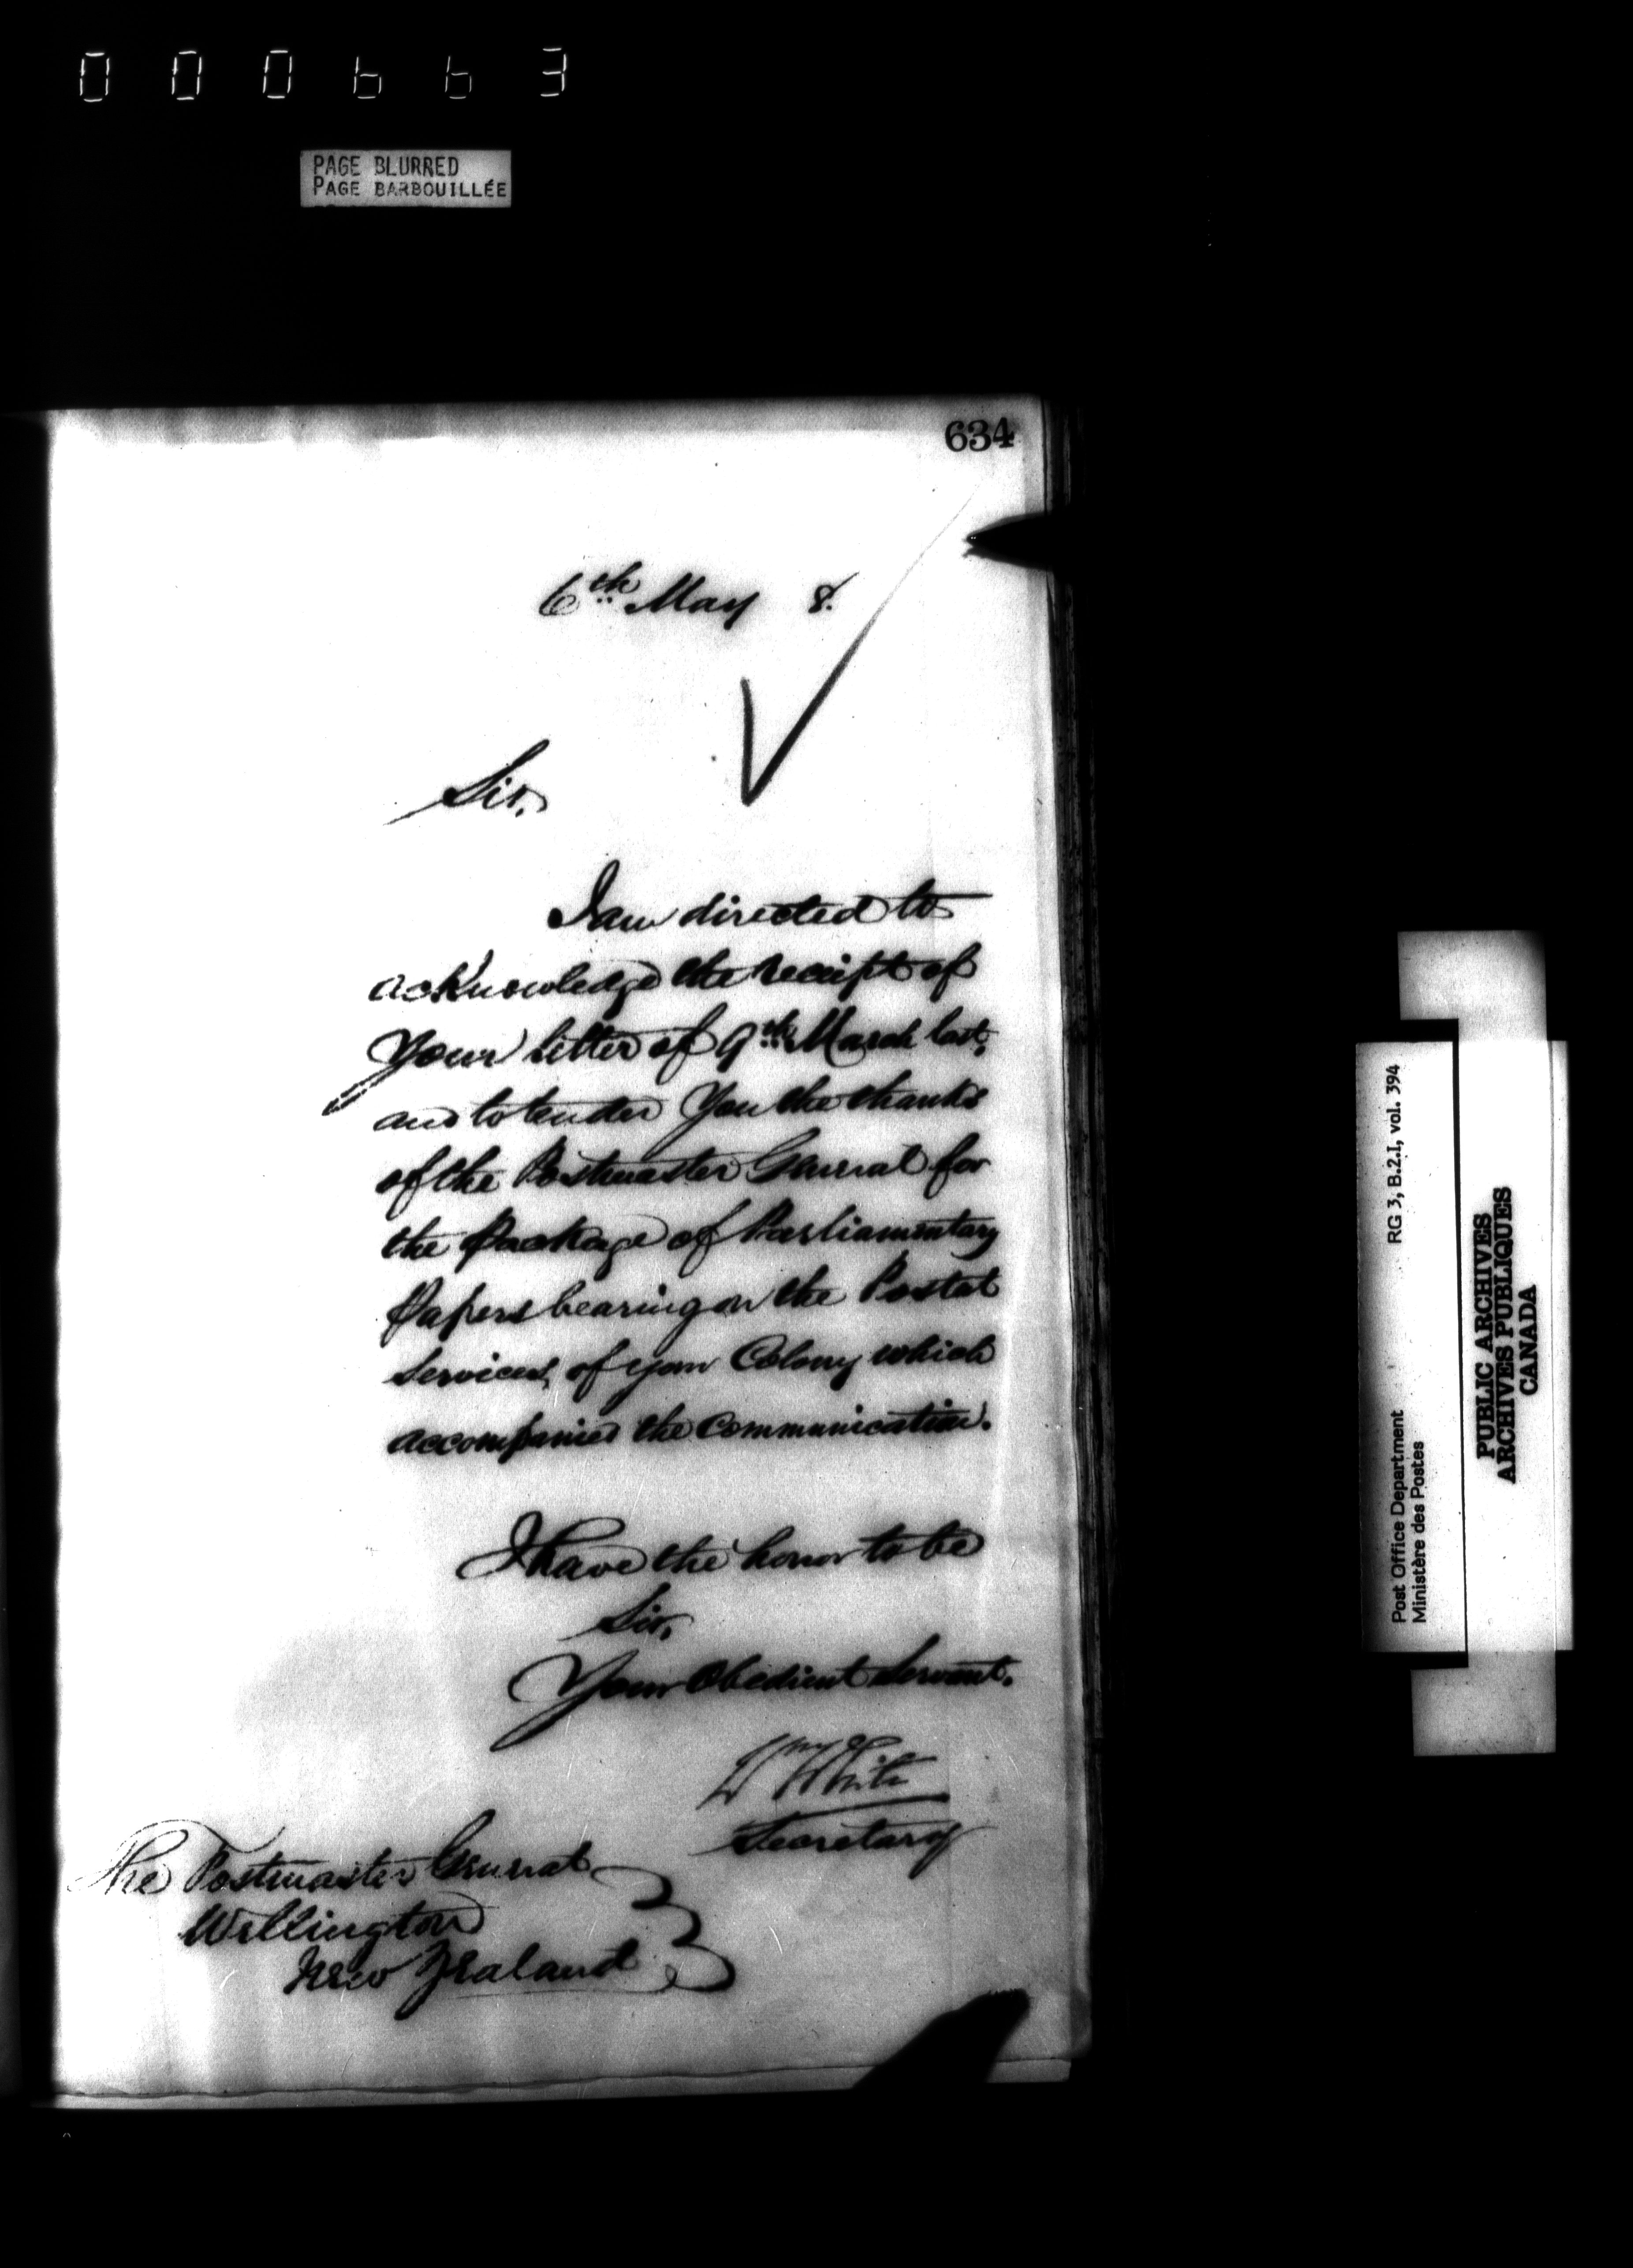 000663
PAGE BLURRED
PAGE BARBOUILLÉE
634
6th May 8.
Sir,
I am directed to
acknowledge the receipt of
Your letter of 9th March last,
and to tender You the thanks
of the Postmaster General for
the Package of Parliamentary
Papers bearing on the Postal
Services, of your Colony which
accompanied the Communication.
I have the honor to be
Sir,
Your Obedient Servant.
Wm White
Secretary
The Postmaster General
Wellington
New Zealand
Post Office Department
Ministère des Postes
RG 3, B.2.I, vol. 394
PUBLIC ARCHIVES
ARCHIVES PUBLIQUES
CANADA